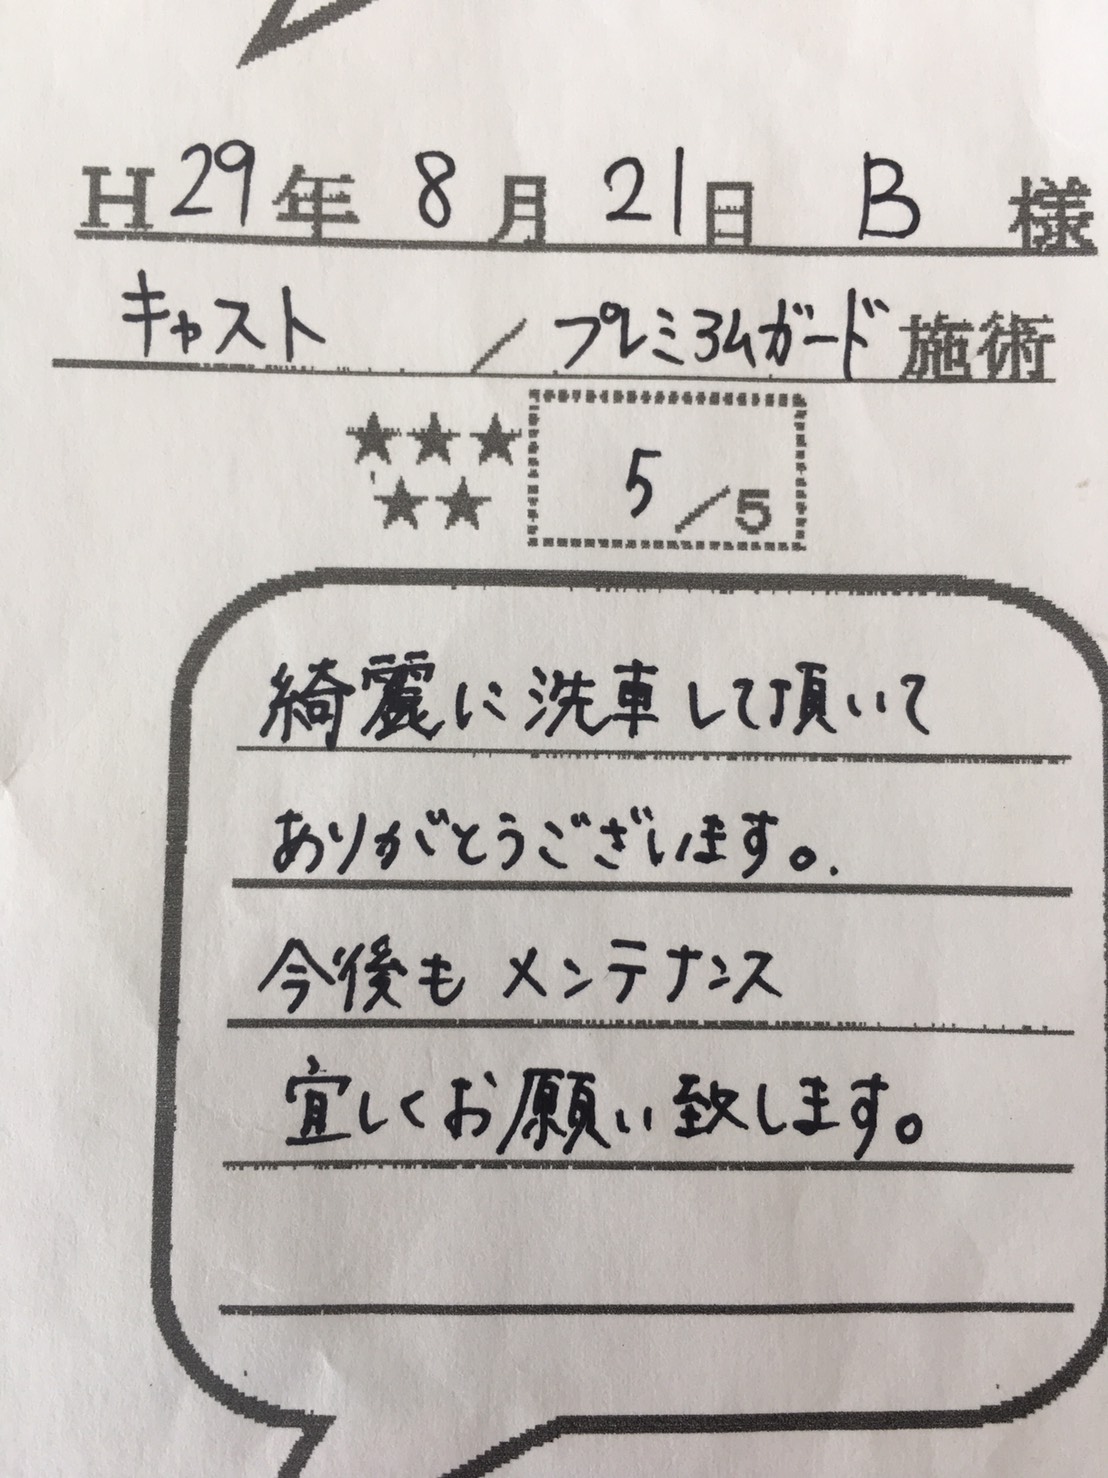 H29年 8月 21日 B 様
キャスト / プレミアムガード 施術
★★★
★★
5/5
綺麗に洗車して頂いて
ありがとうございます。.
今後もメンテナンス
宜しくお願い致します。